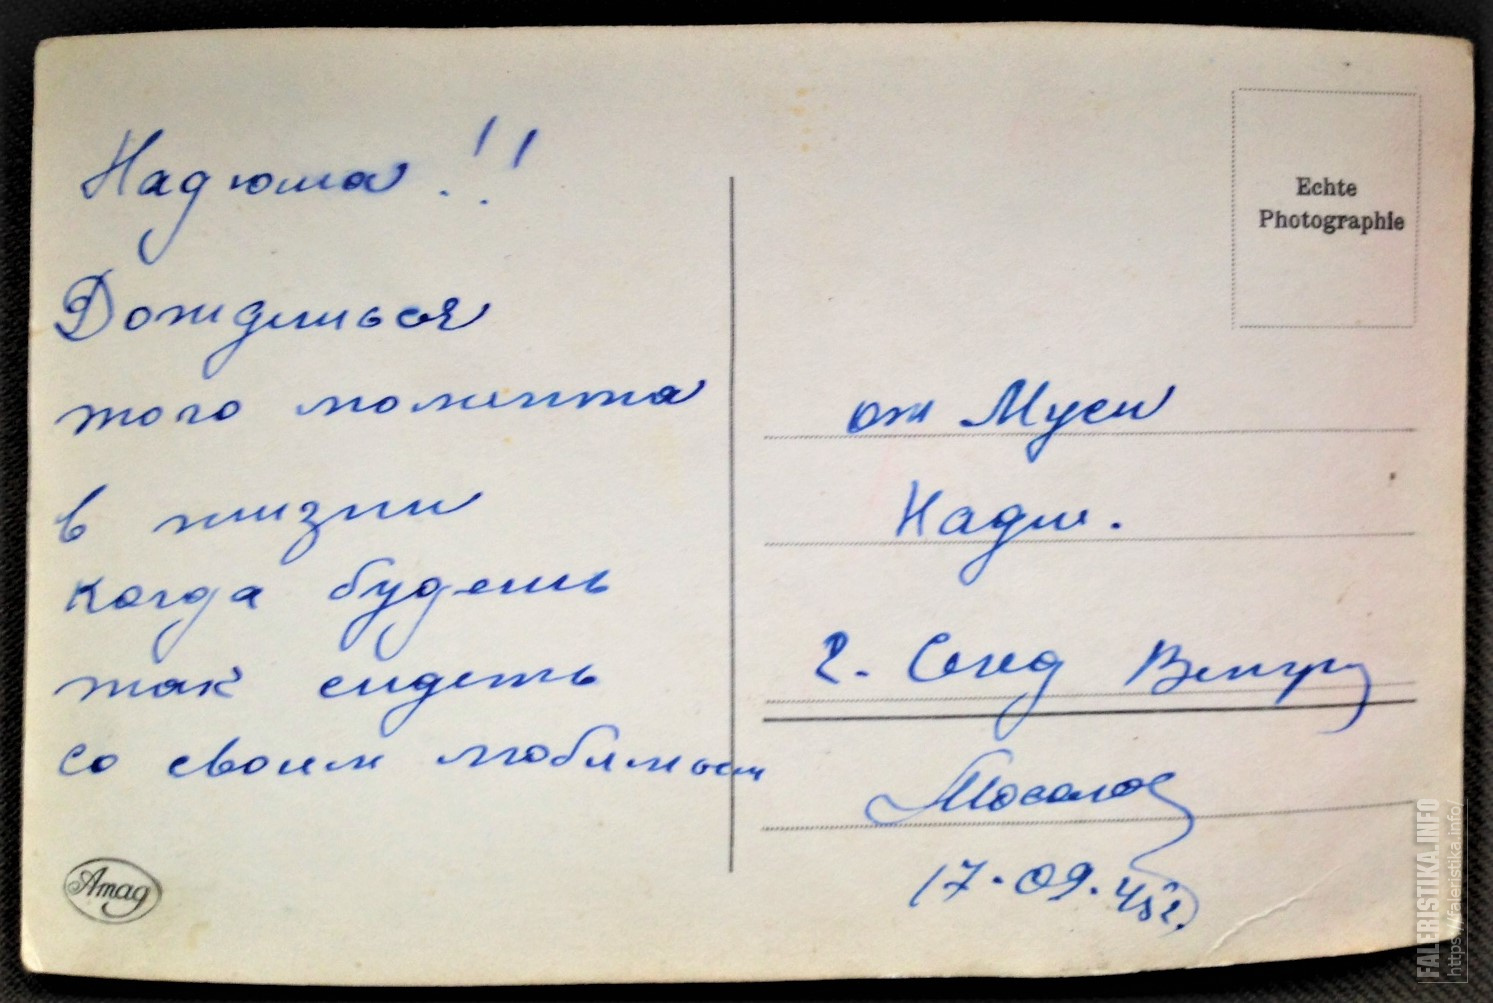 Надюша!!
Дождешься
того момента
в жизни
когда будешь
так сидеть
со своим любимым
Amag
Echte
Photographie
от Муси
Наде.
г. Сегед Венгр
Мосалов
17.09.45г.
FALERISTIKA.INFO
https://faleristika.info/